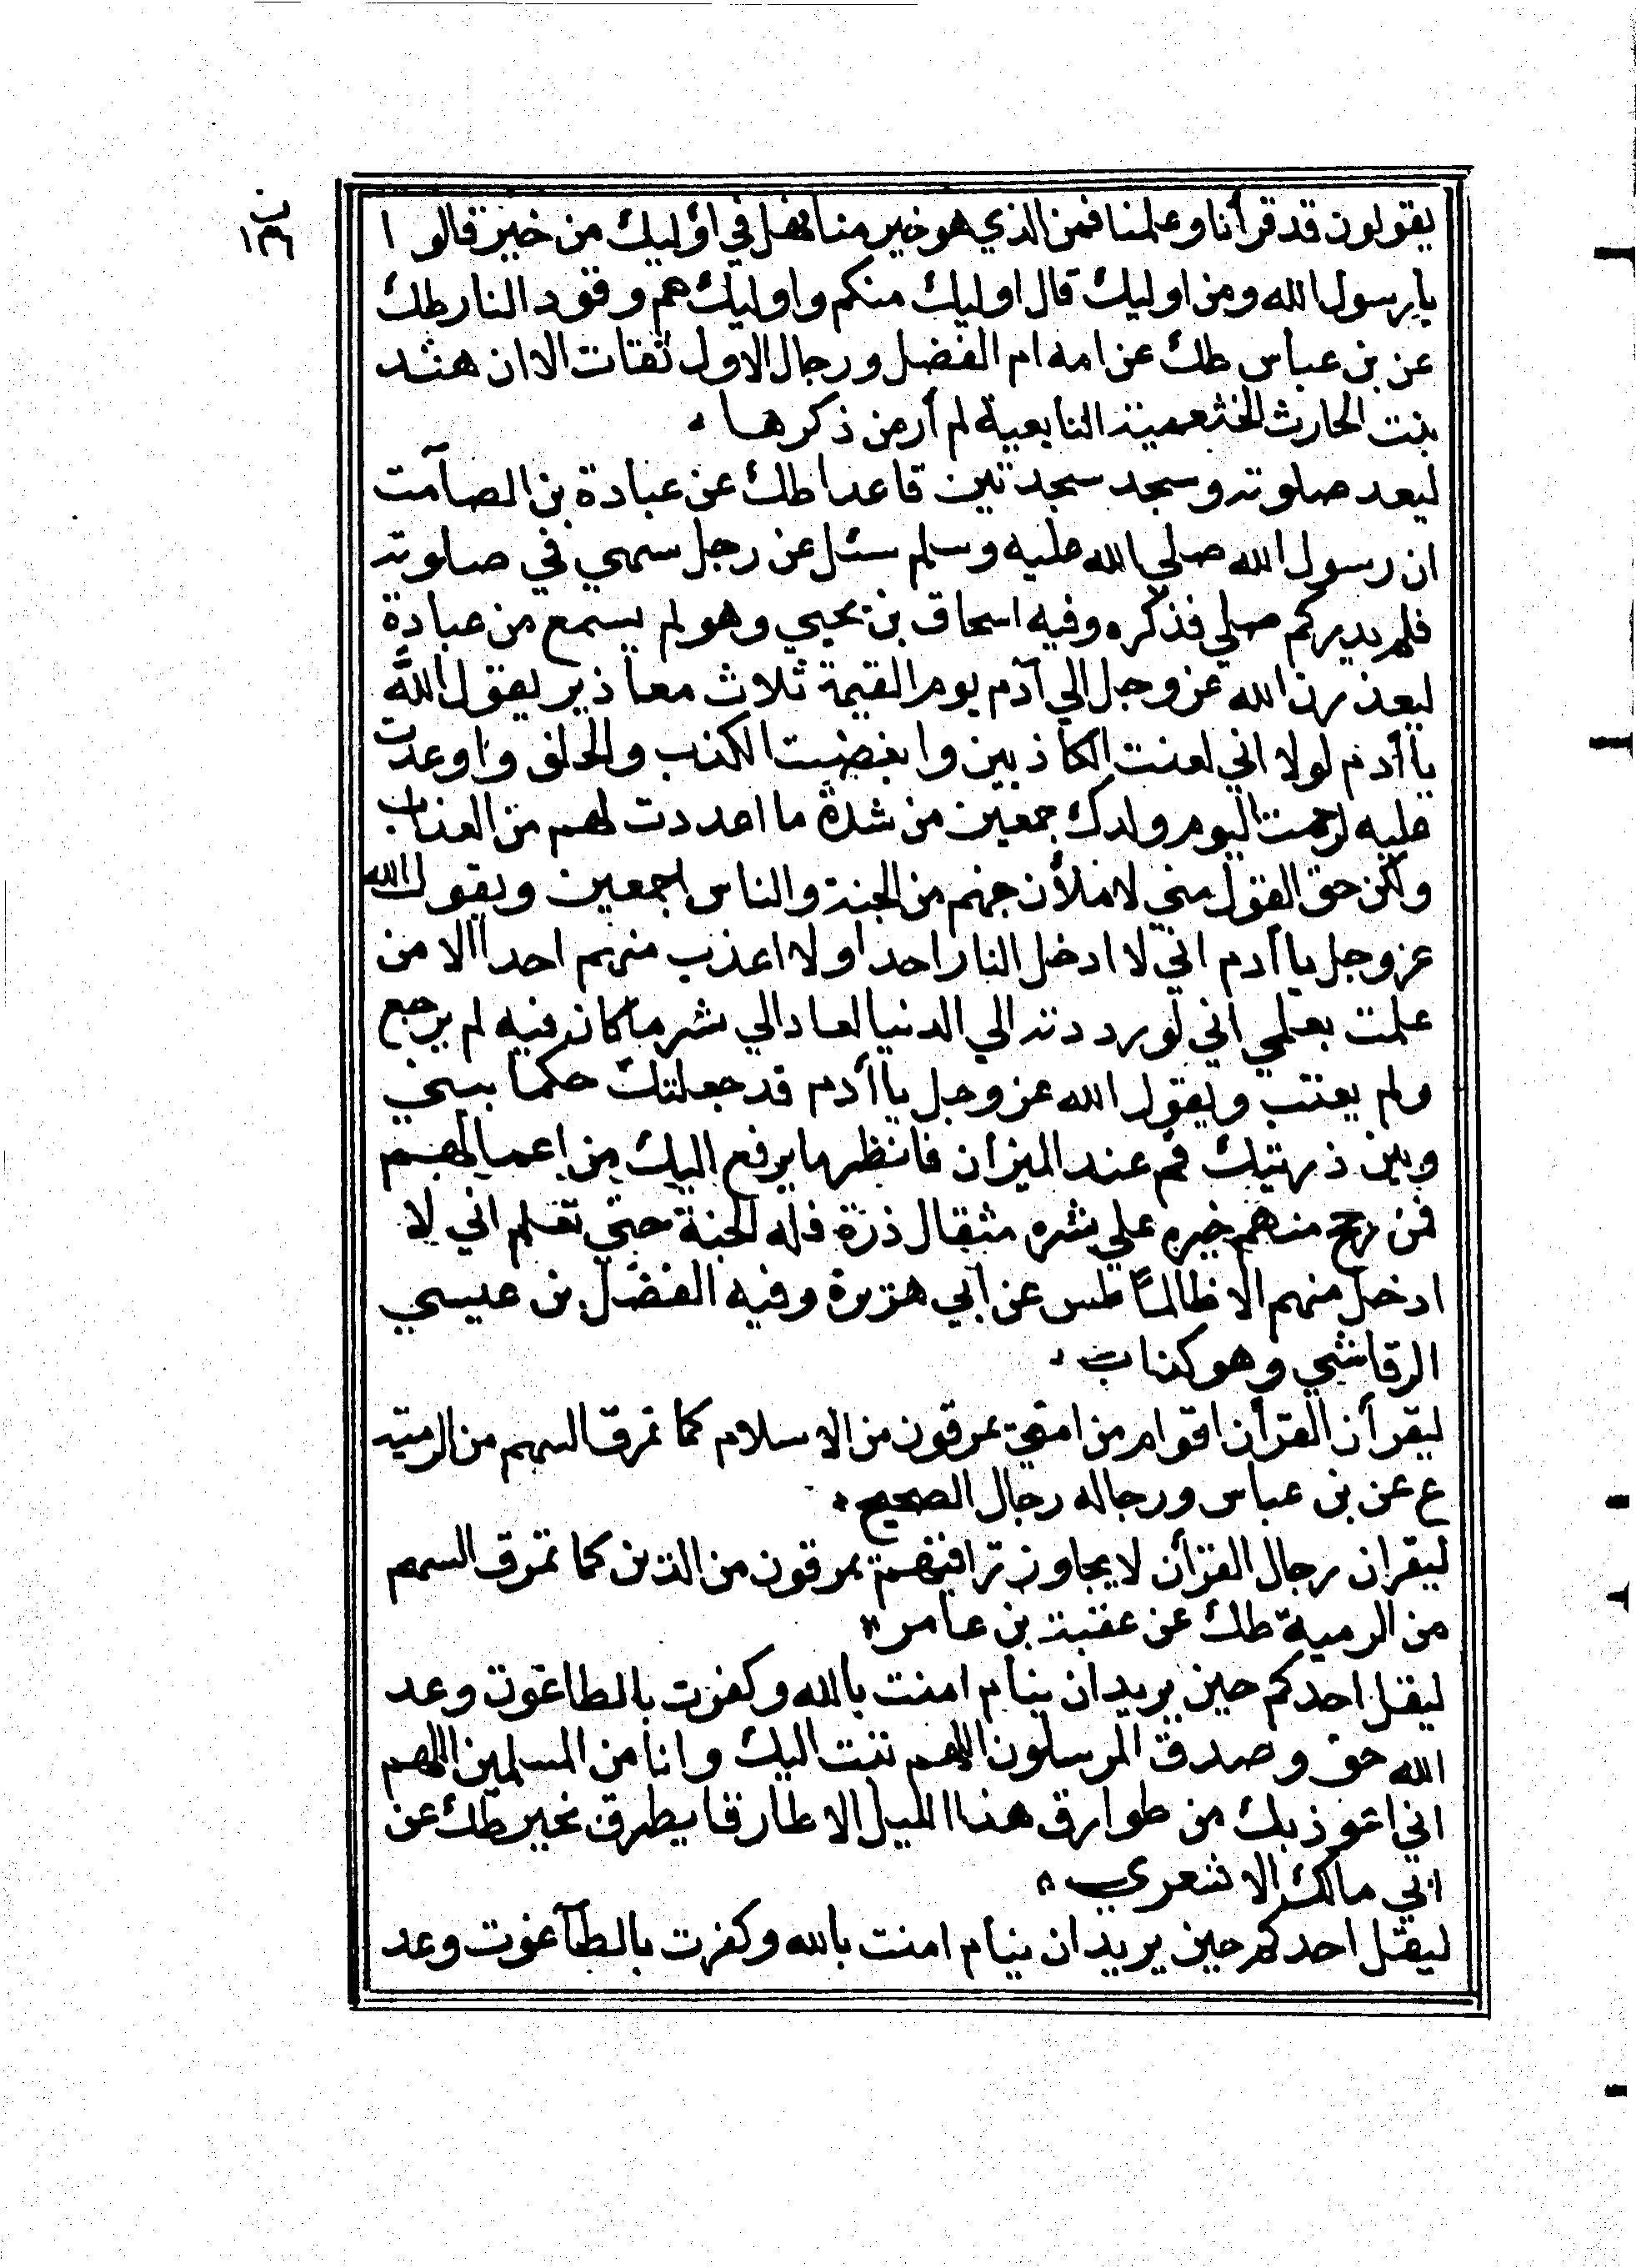 ب
١٣٦
يقولون قد قرأنا وعلمنا فمن الذي هو خير منا فهل في اوليك من خير قالوا
يا رسول الله ومن اوليك قال اوليك منكم واوليك هم وقود النار طك
عن بن عباس طك عن امه ام الفضل ورجال الاول ثقات الا ان هند
بنت الحارث الخثعمية التابعية لم أر من ذكرها
ليعد صلوته وسجد سجدتين قاعدا طك عن عبادة بن الصامت
ان رسول الله صلي الله عليه وسلم سئل عن رجل سهي في صلوته
فلم يدر كم صلي فذكره وفيه اسحاق بن يحيي وهو لم يسمع من عبادة
ليعذرن الله عز وجل الي آدم يوم القيمة ثلاث معاذير يقول الله
يا أدم لولا اني لعنت الكاذبين وابغضت الكذب والحلف واوعدت
عليه لرحمت اليوم ولدك جمعين من شدة ما اعددت لهم من العذاب
ولكن حق القول مني لاملأن جهنم من الجنة والناس اجمعين ويقول الله
عز وجل يا أدم اني لا ادخل النار احدا ولا اعذب منهم احدا الا من
علمت بعلمي اني لو رددته الي الدنيا لعاد الي شر ما كان فيه لم يرجع
ولم يعتب ويقول الله عز وجل يا أدم قد جعلتك حكما بيني
وبين ذريتك قم عند الميزان فانظر ما يرفع اليك من اعمالهم
فمن رجح منهم خيره علي شره مثقال ذرة فله الجنة حتي تعلم اني لا
ادخل منهم الا ظالما طس عن ابي هريرة وفيه الفضل بن عيسي
الرقاشي وهو كذاب
ليقرأن القرأن اقوام من امتي يمرقون من الاسلام كما تمرق السهم من الرمية
ع عن بن عباس ورجاله رجال الصحيح
ليقران رجال القرأن لا يجاوز تراقيهم يمرقون من الدين كما تمرق السهم
من الرمية طك عن عقبة بن عامر
ليقل احدكم حين يريد ان ينام امنت بالله وكفرت بالطاغوت وعد
الله حق وصدق المرسلون اللهم تبت اليك وانا من المسلمين اللهم
اني اعوذ بك من طوارق هذا الليل الا طارقا يطرق بخير طك عن
ابي مالك الاشعري
ليقل احدكم حين يريد ان ينام امنت بالله وكفرت بالطآغوت وعد